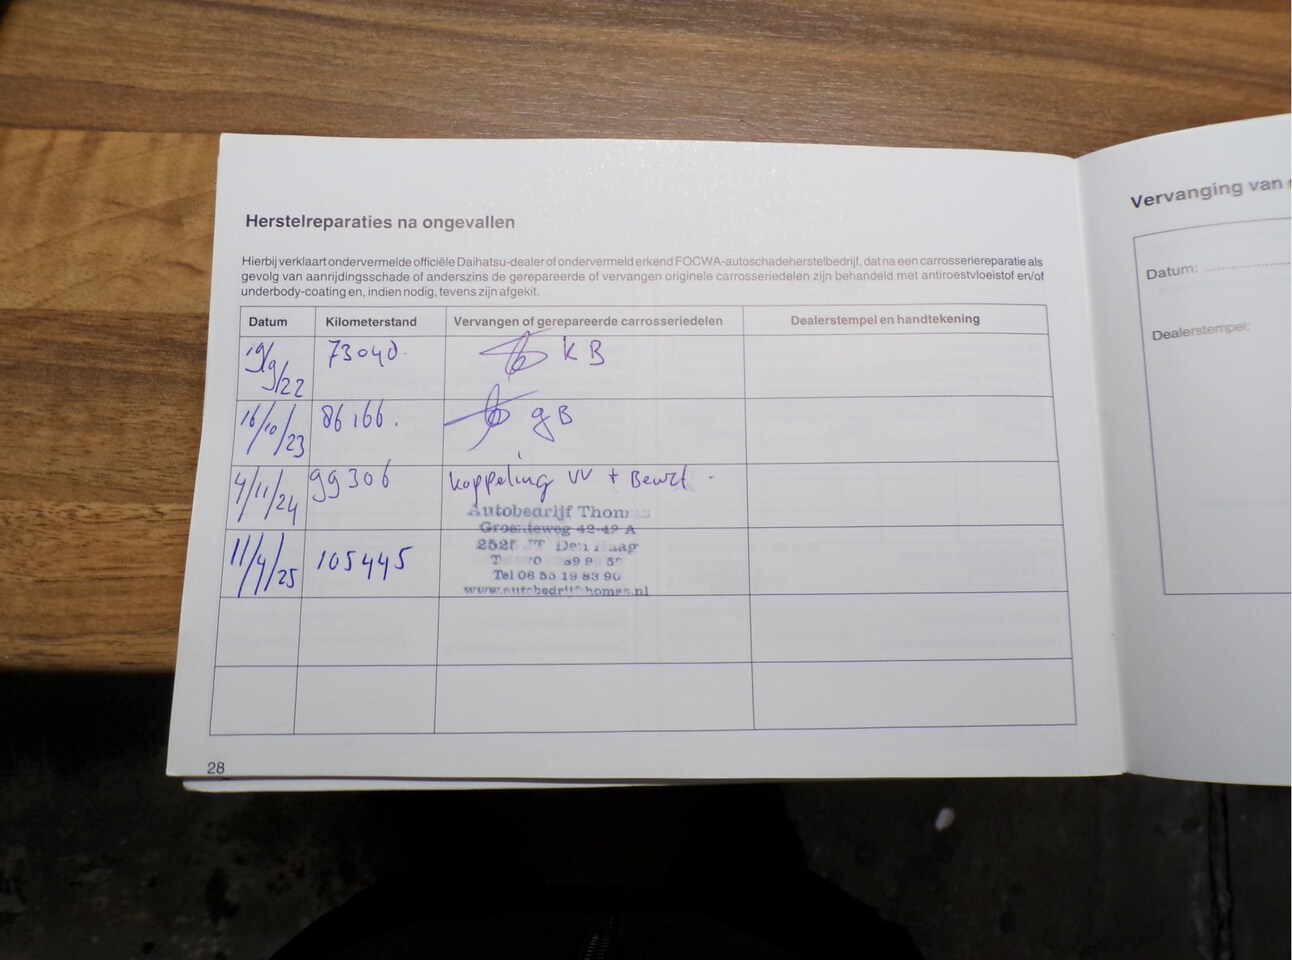 Herstelreparaties na ongevallen
Hierbij verklaart ondervermelde officiële Daihatsu-dealer of ondervermeld erkend FOCWA-autoschadeherstelbedrijf, dat na een carrosseriereparatie als
gevolg van aanrijdingsschade of anderszins de gerepareerde of vervangen originele carrosseriedelen zijn behandeld met antiroestvloeistof en/of
underbody-coating en, indien nodig, tevens zijn afgekit.
Datum Kilometerstand Vervangen of gerepareerde carrosseriedelen Dealerstempel en handtekening
19/9/22 73040. KB
16/10/23 86166. gB
4/11/24 99306 Koppeling VV + Beurt
Autobedrijf Thomas
42-42 A
Den Haag
Tel 06 55 19 83 90
11/4/25 105445
28
Vervanging van
Datum:
Dealerstempel: